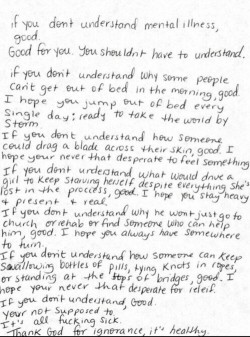 if you dont understand mental illness,
good.
Good for you. You shouldnt have to understand.
if you dont understand why some people
can't get out of bed in the morning, good
I hope you jump out of bed every
single day; ready to take the world by
Storm
If you dont understand how someone
could drag a blade across their skin, good. I
hope your never that desperate to feel something
If you dont understand what would drive a
girl to keep starving herself despite everything she's
lost in the process, good. I hope you stay heavy
& present & real.
If you dont understand why he wont just go to
church or rehab or find someone who can help
him, good. I hope you always have somewhere
to turn.
If you dont understand how someone can keep
Swallowing bottles of pills, tying knots in ropes,
or standing at the tops of bridges, good. I
hope your never that desperate for releif.
If you don't understand, Good.
your not supposed to.
It's all fucking sick.
Thank God for ignorance, it's healthy.